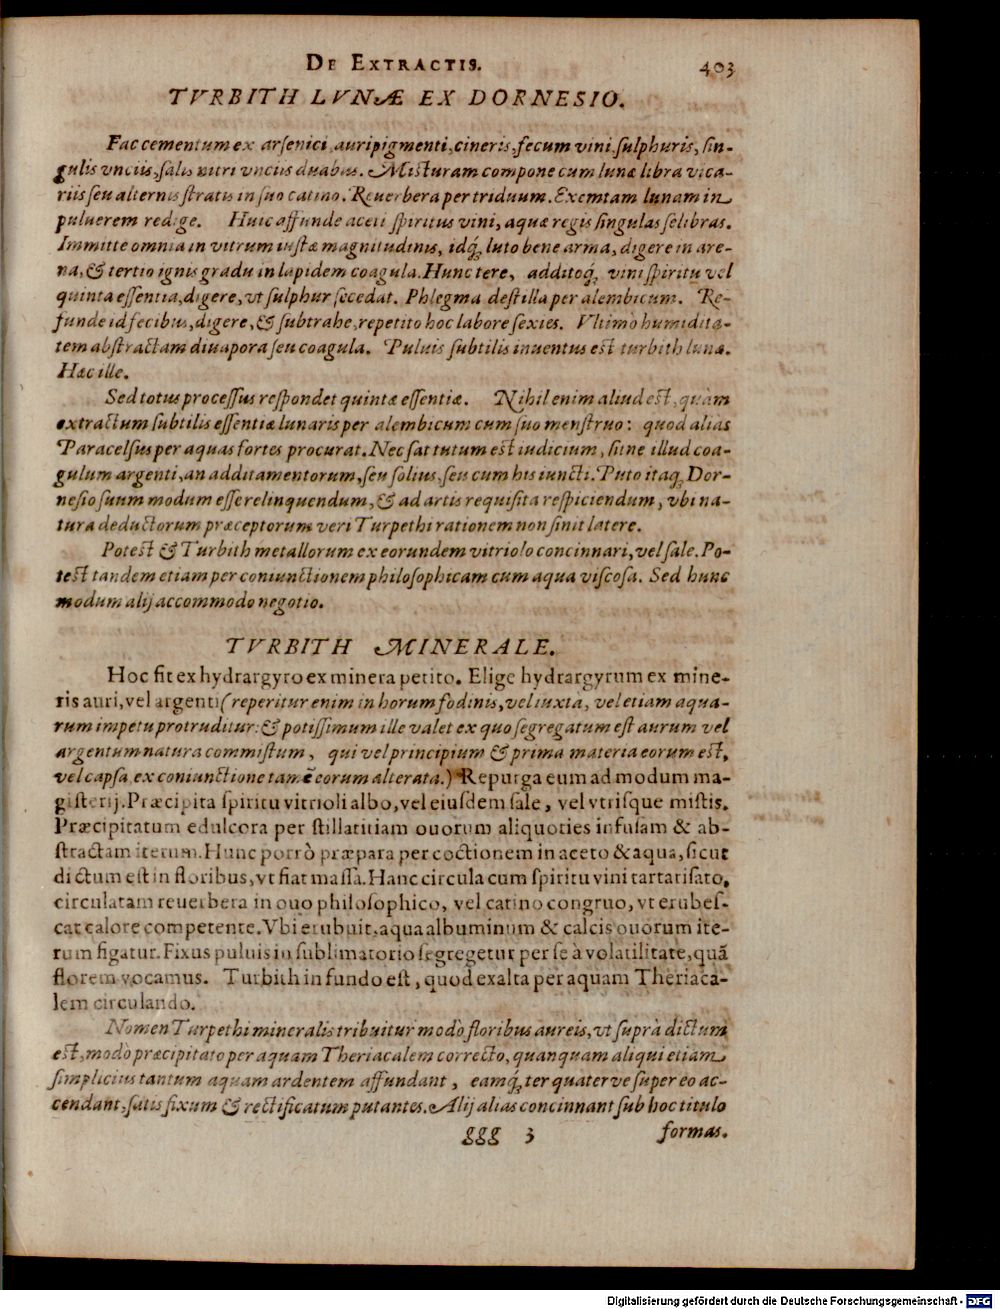 DE EXTRACTIS. 403
TVRBITH LVNÆ EX DORNESIO.
Fac cementum ex arſenici, auripigmenti, cineris, fecum vini, ſulphuris, ſin-
gulis vnciis, ſalis nitri vnciis duabus. Miſturam compone cum lunæ libra vica-
riis ſeu alternis ſtratis in ſuo catino. Reuerbera per triduum. Exemtam lunam in
puluerem redige. Huic affunde aceti ſpiritus vini, aquæ regis ſingulas ſelibras.
Immitte omnia in vitrum iuſtæ magnitudinis, idq́; luto bene arma, digere in are-
na, & tertio ignis gradu in lapidem coagula. Hunc tere, additoq́; vini ſpiritu vel
quinta eſſentia, digere, vt ſulphur ſecedat. Phlegma deſtilla per alembicum. Re-
funde id fecibus, digere, & ſubtrahe, repetito hoc labore ſexies. Vltimò humidita-
tem abſtractam diuapora ſeu coagula. Puluis ſubtilis inuentus est turbith lunæ.
Hæc ille.
Sed totus proceſſus reſpondet quintæ eſſentiæ. Nihil enim aliud est, quàm
extractum ſubtilis eſſentiæ lunaris per alembicum cum ſuo menſtruo: quod alias
Paracelſus per aquas fortes procurat. Nec ſat tutum est iudicium, ſitne illud coa-
gulum argenti, an additamentorum, ſeu ſolius, ſeu cum his iuncti. Puto itaq; Dor-
neſio ſuum modum eſſe relinquendum, & ad artis requiſita reſpiciendum, vbi na-
tura deductorum præceptorum veri Turpethi rationem non ſinit latere.
Potest & Turbith metallorum ex eorundem vitriolo concinnari, vel ſale. Po-
test tandem etiam per coniunctionem philoſophicam cum aqua viſcoſa. Sed hunc
modum alij accommodo negotio.
TVRBITH MINERALE.
Hoc fit ex hydrargyro ex minera petito. Elige hydrargyrum ex mine-
ris auri, vel argenti (reperitur enim in horum fodinis, vel iuxta, vel etiam aqua-
rum impetu protruditur: & potiſſimum ille valet ex quo ſegregatum eſt aurum vel
argentum natura commiſtum, qui vel principium & prima materia eorum eſt,
vel capſa, ex coniunctione tamē eorum alterata.) Repurga eum ad modum ma-
giſterij. Præcipita ſpiritu vitrioli albo, vel eiuſdem ſale, vel vtriſque miſtis.
Præcipitatum edulcora per ſtillatitiam ouorum aliquoties infuſam & ab-
ſtractam iterum. Hunc porrò præpara per coctionem in aceto & aqua, ſicut
dictum eſt in floribus, vt fiat maſſa. Hanc circula cum ſpiritu vini tartariſato,
circulatam reuerbera in ouo philoſophico, vel catino congruo, vt erubeſ-
cat calore competente. Vbi erubuit, aqua albuminum & calcis ouorum ite-
rum figatur. Fixus puluis in ſublimatorio ſegregetur per ſe à volatilitate, quā
florem vocamus. Turbith in fundo eſt, quod exalta per aquam Theriaca-
lem circulando.
Nomen Turpethi mineralis tribuitur modò floribus aureis, vt ſuprà dictum
eſt, modò præcipitato per aquam Theriacalem correcto, quanquam aliqui etiam
ſimplicius tantum aquam ardentem affundant, eamq́; ter quaterve ſuper eo ac-
cendant, ſatis fixum & rectificatum putantes. Alij alias concinnant ſub hoc titulo
ggg 3 formas.
Digitalisierung gefördert durch die Deutsche Forschungsgemeinschaft - DFG